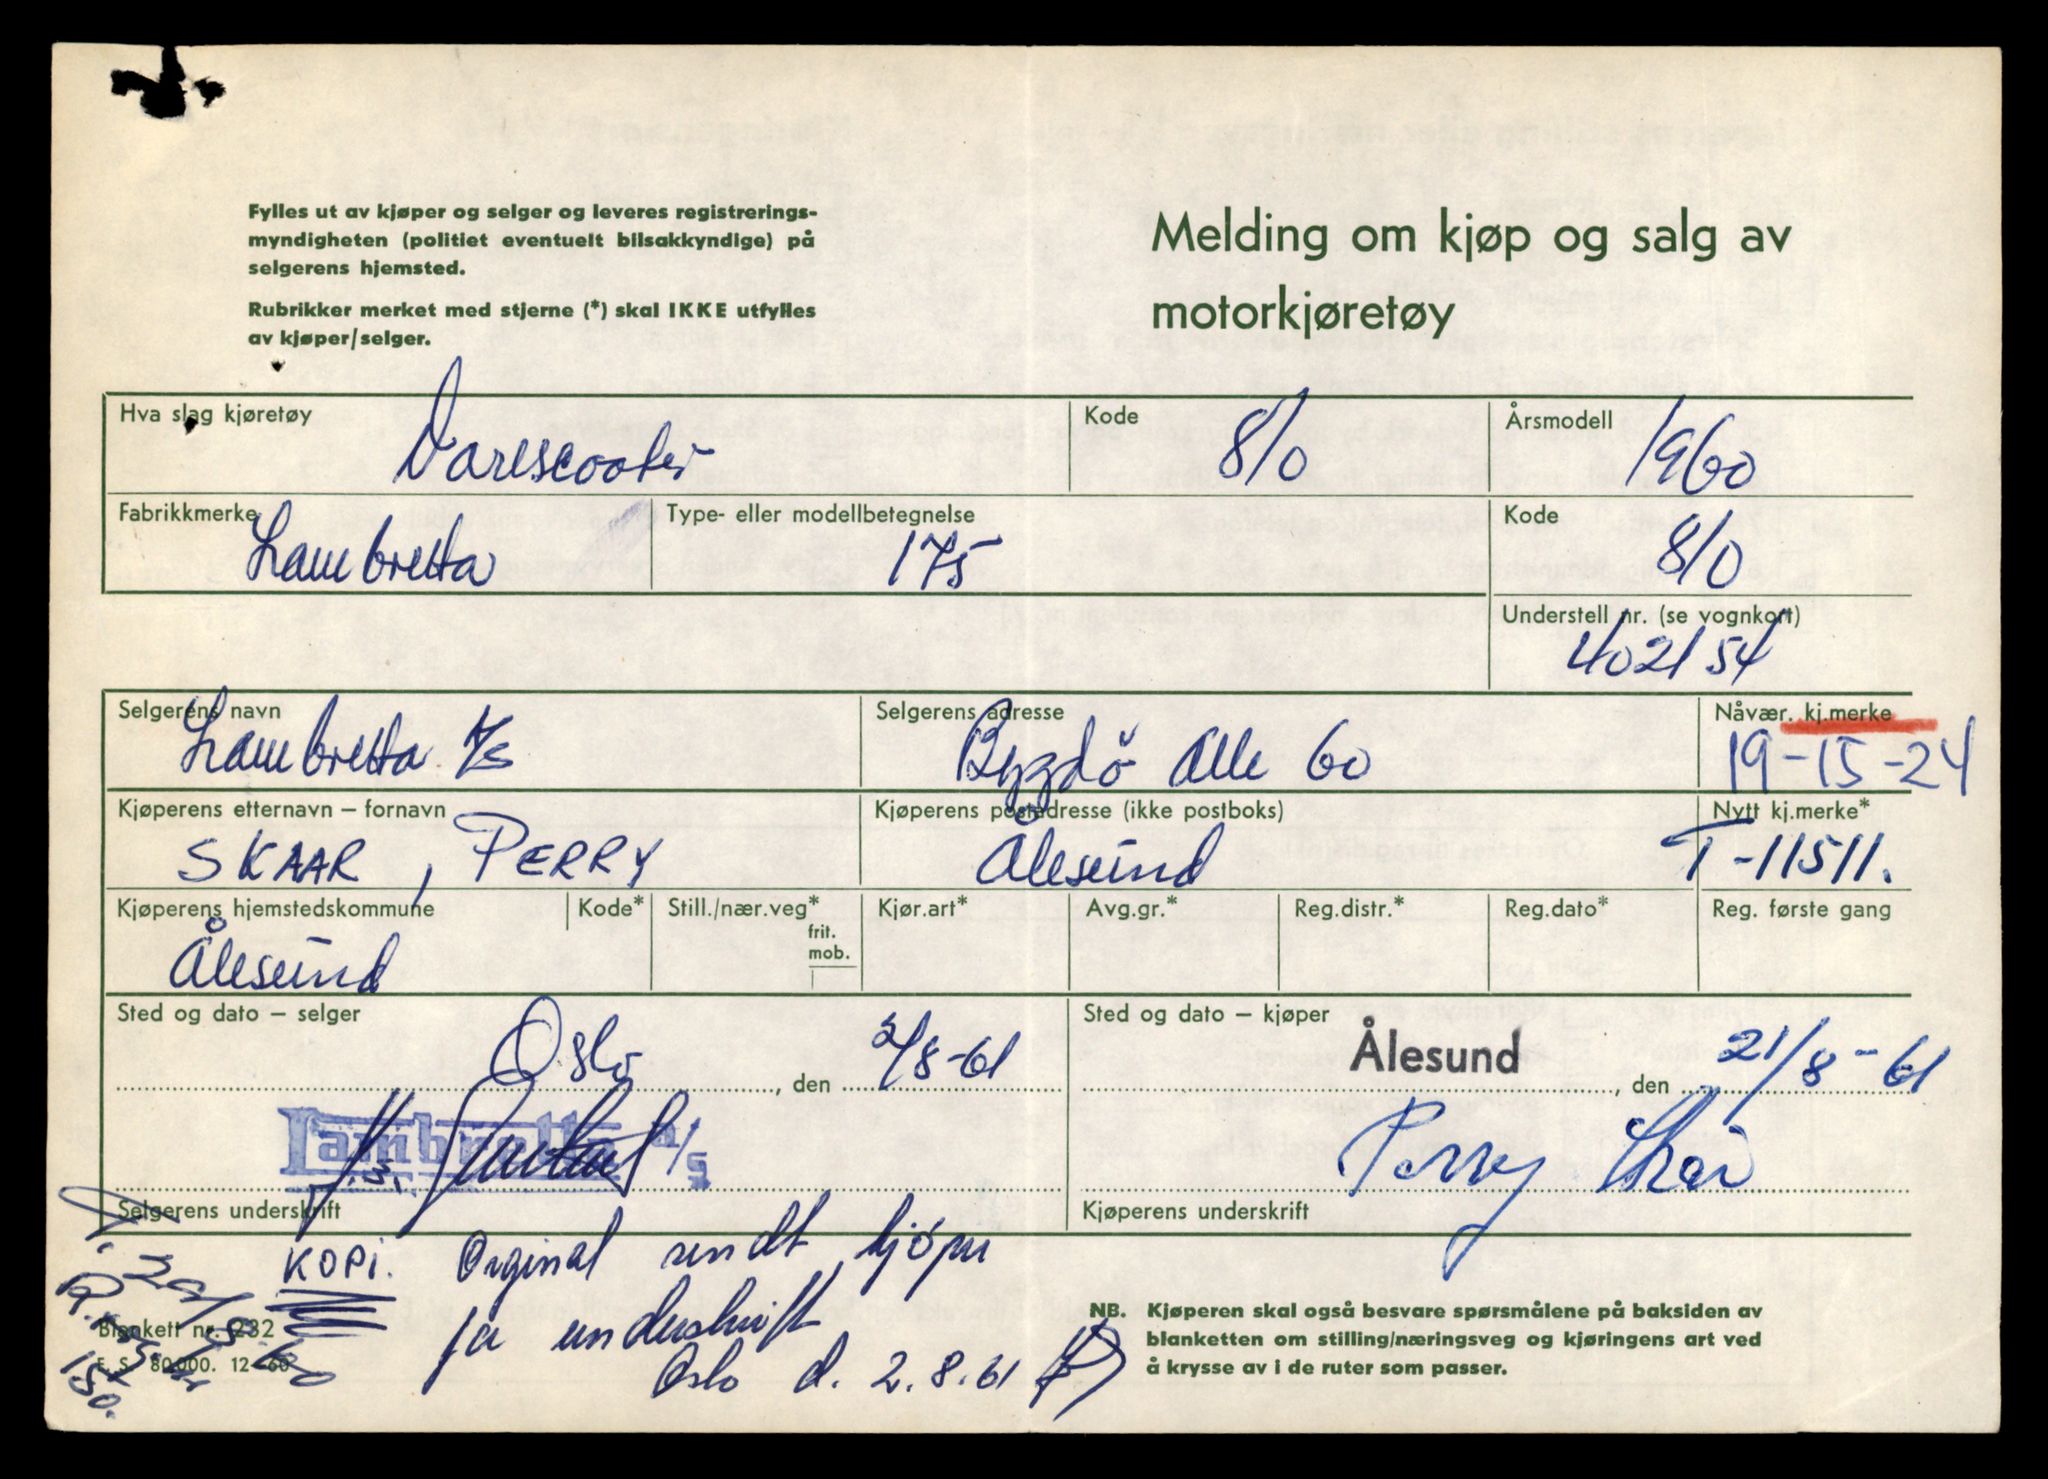 Fylles ut av kjøper og selger og leveres registrerings-
myndigheten (politiet eventuelt bilsakkyndige) på
selgerens hjemsted.
Rubrikker merket med stjerne (*) skal IKKE utfylles
av kjøper/selger.
Melding om kjøp og salg av
motorkjøretøy
Hva slag kjøretøy
Varescooter
Kode
8/0
Årsmodell
1960
Fabrikkmerke
Lambretta
Type- eller modellbetegnelse
175
Kode
8/0
Understell nr. (se vognkort)
402154
Selgerens navn
Lambretta A/S
Selgerens adresse
Bygdö Alle 60
Nåvær. kj.merke
19-15-24
Kjøperens etternavn – fornavn
SKAAR, PERRY
Kjøperens postadresse (ikke postboks)
Ålesund
Nytt kj.merke*
T-11511.
Kjøperens hjemstedskommune
Ålesund
Kode*
Still./nær.veg*
frit.
mob.
Kjør.art*
Avg.gr.*
Reg.distr.*
Reg.dato*
Reg. første gang
Sted og dato – selger
Oslo, den 2/8-61
Lambretta A/S
Selgerens underskrift
Sted og dato – kjøper
Ålesund, den 21/8-61
Perry Skar
Kjøperens underskrift
KOPI. Orginal sendt kjöper
for underskrift
Oslo d. 2.8.61
Blankett nr. 232
E. S. 80000. 12-60
150.
NB. Kjøperen skal også besvare spørsmålene på baksiden av
blanketten om stilling/næringsveg og kjøringens art ved
å krysse av i de ruter som passer.